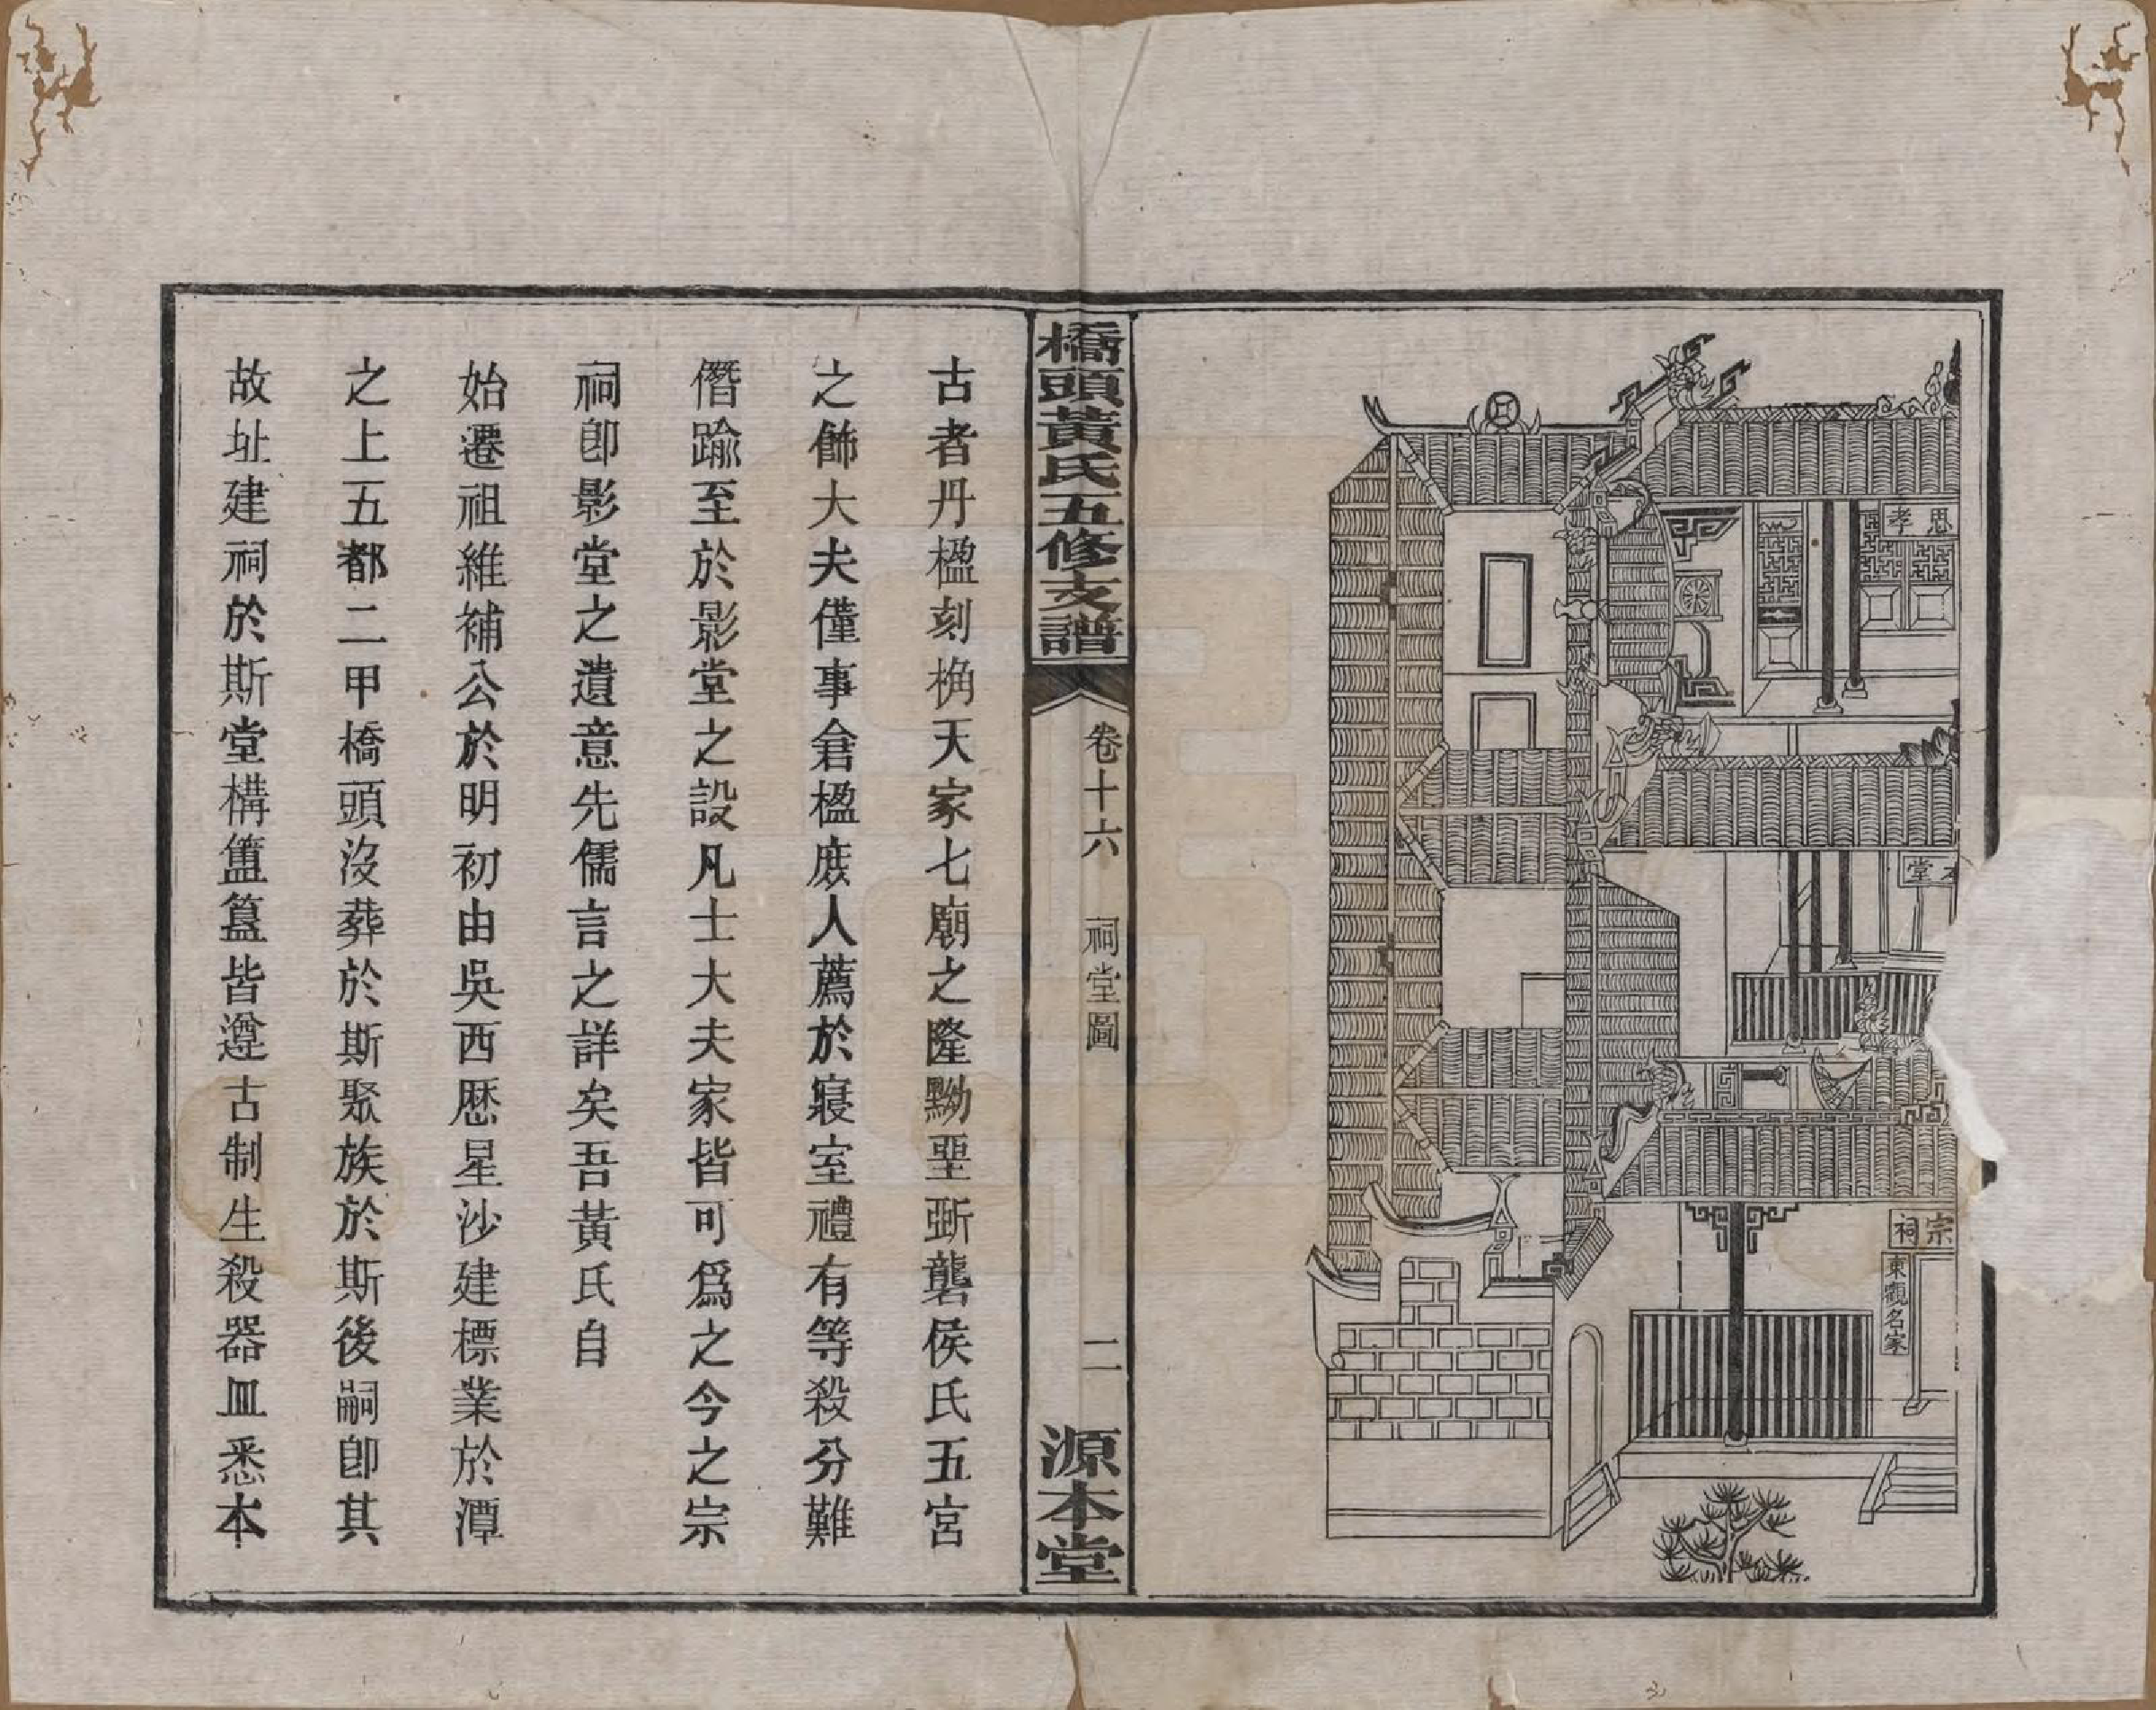 思孝
堂
宗祠
東觀名家
橋頭黃氏五修支譜
卷十六
祠堂圖
二
源本堂
古者丹楹刻桷天家七廟之隆黝堊斲礱侯氏五宮
之飾大夫僅事倉楹庻人薦於寢室禮有等殺分難
僭踰至於影堂之設凡士大夫家皆可爲之今之宗
祠卽影堂之遺意先儒言之詳矣吾黃氏自
始遷祖維補公於明初由吳西歷星沙建標業於潭
之上五都二甲橋頭沒葬於斯聚族於斯後嗣卽其
故址建祠於斯堂構簠簋皆遵古制生殺器皿悉本